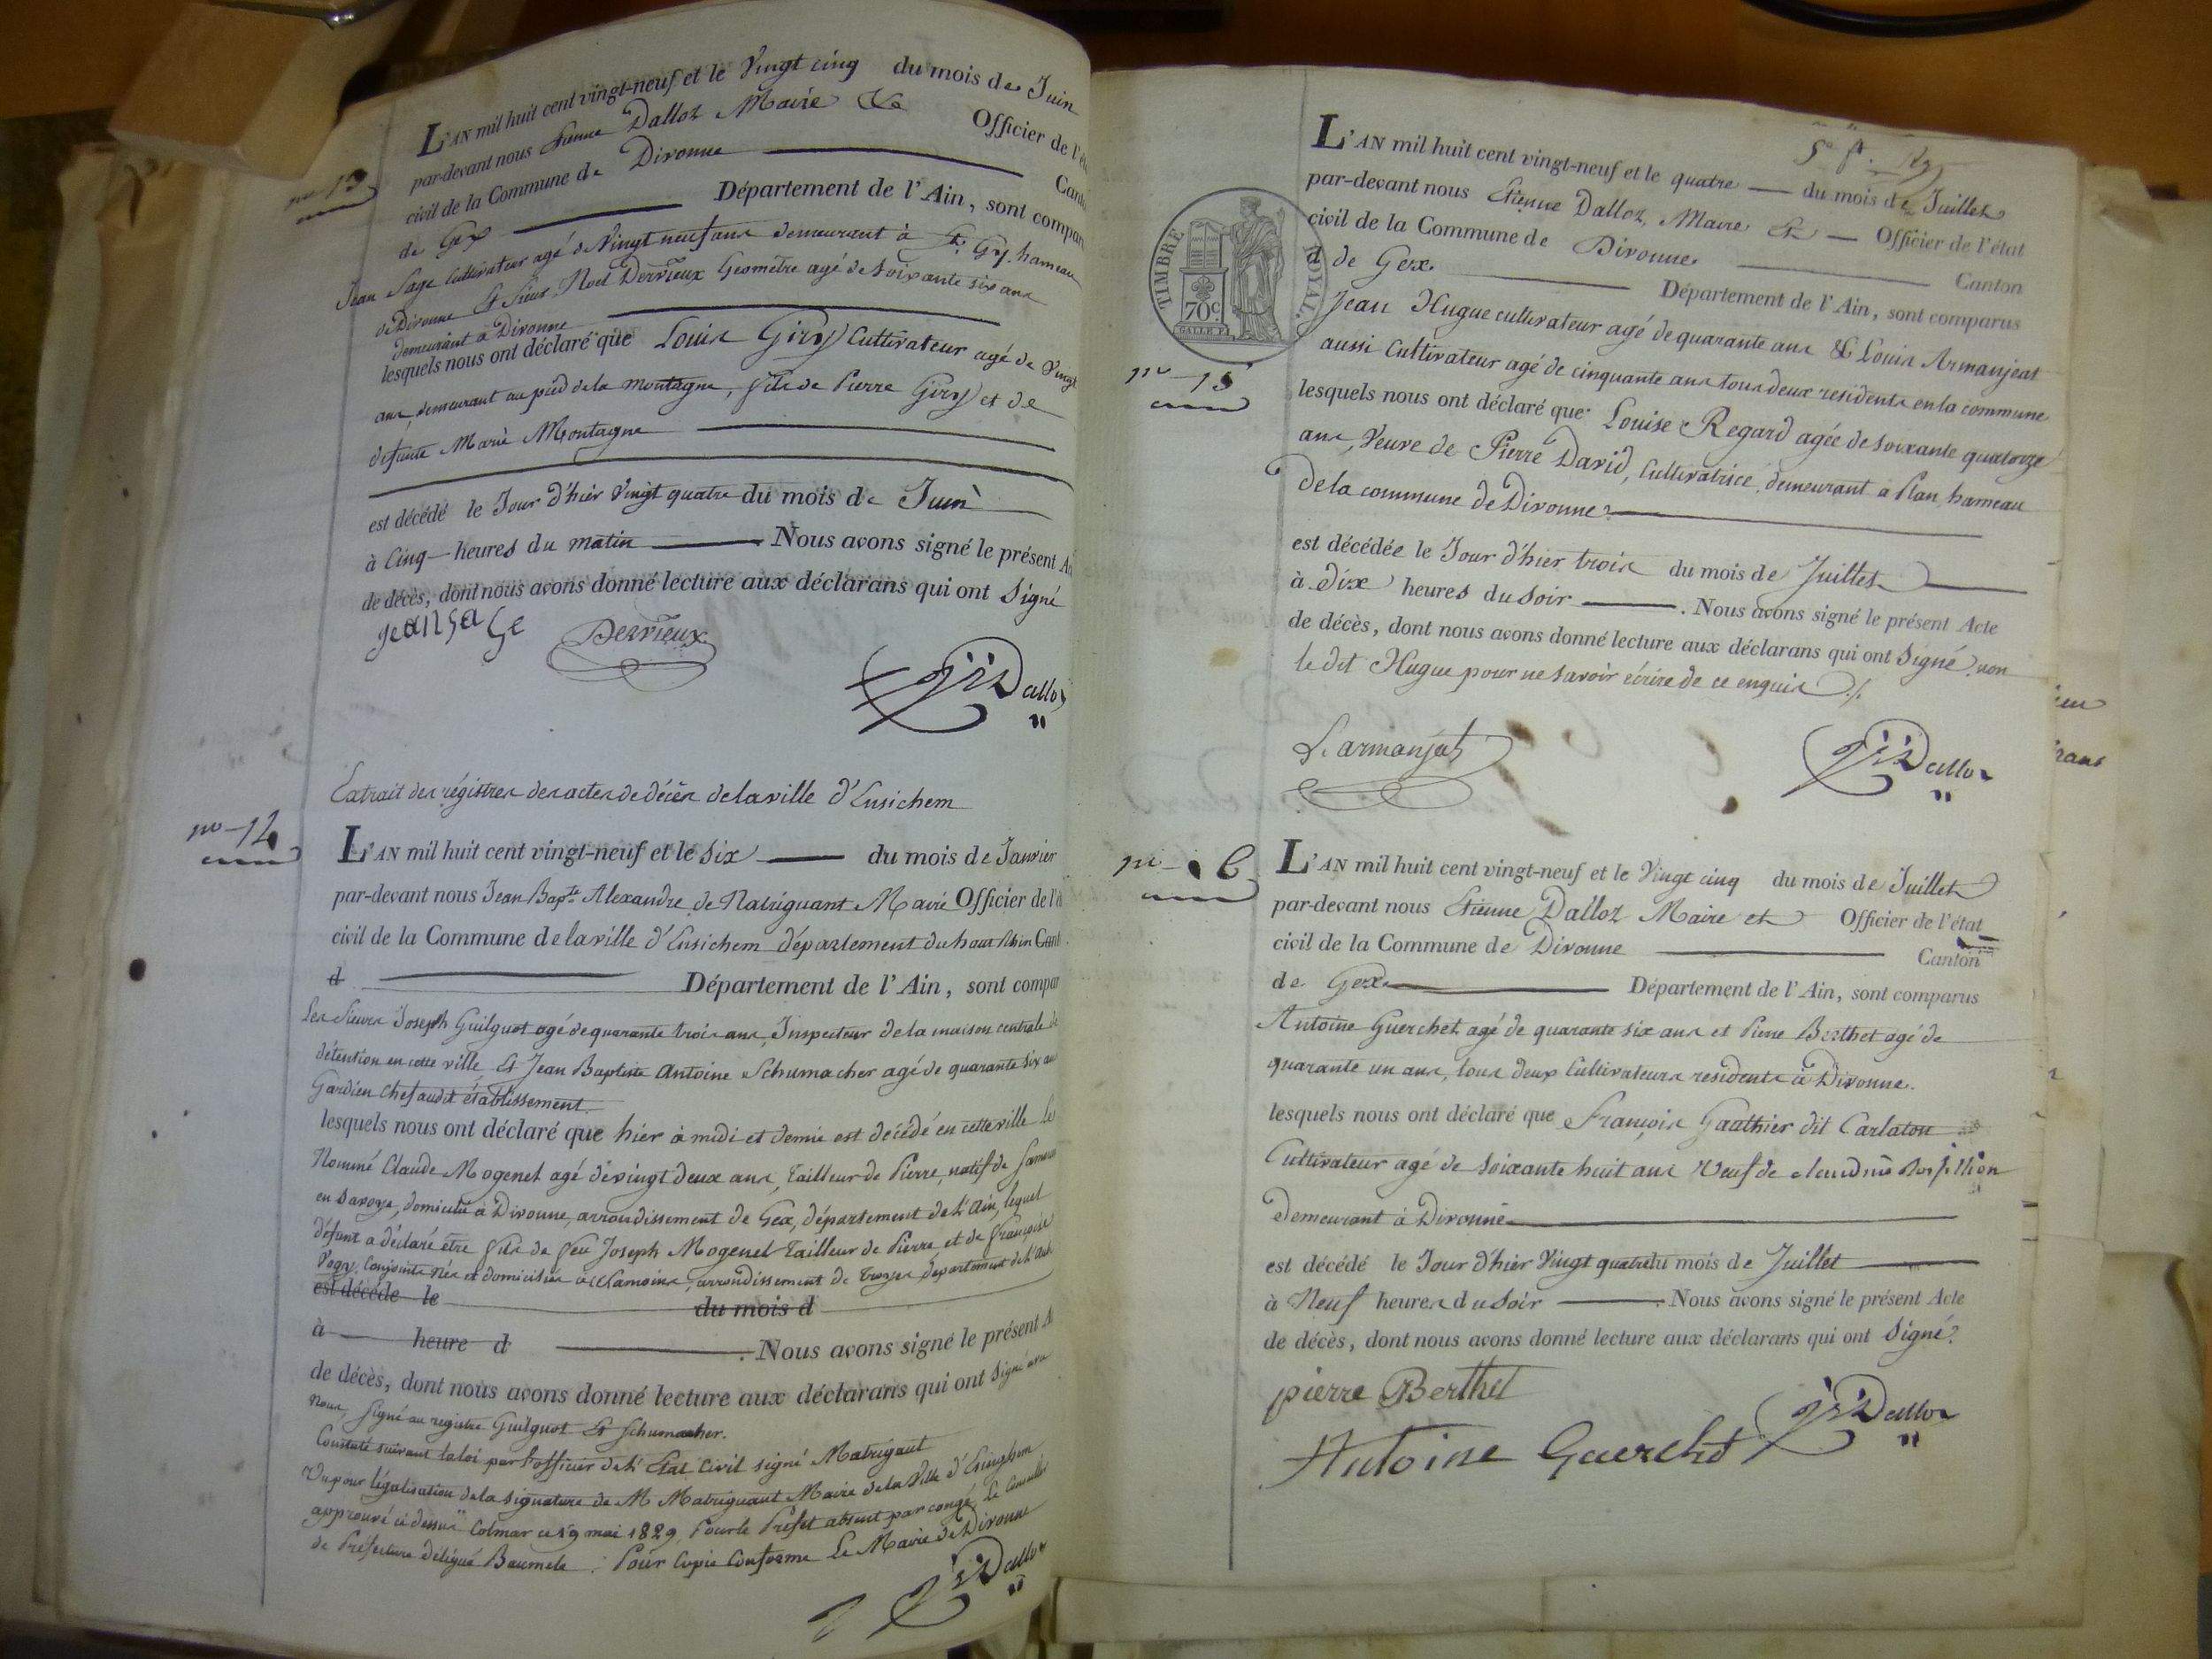 no 13
L'AN mil huit cent vingt-neuf et le Vingt cinq du mois de Juin
par-devant nous Etienne Dalloz Maire & Officier de l'é
civil de la Commune de Divonne Cant
de Gex Département de l'Ain, sont compar
Jean Sage Cultivateur agé de Vingt neuf ans demeurant à St. Gy. hameau
de Divonne Et Sieur Noel Derrieux Geometre agé de soixante six ans
demeurant à Divonne
lesquels nous ont déclaré que Louis Giry Cultivateur agé de Vingt
ans, demeurant au pied de la montagne, fils de Pierre Giry et de
defunte Marie Montagne
est décédé le Jour d'hier Vingt quatre du mois de Juin
à Cinq heures du matin Nous avons signé le présent A
de décès, dont nous avons donné lecture aux déclarans qui ont Signé
jean sage
Derrieux
Dalloz
Extrait des régistres des actes de décès de la ville d'Ensichem
no 14
L'AN mil huit cent vingt-neuf et le Six du mois de Janvier
par-devant nous Jean Bapte Alexandre de Matriguant Maire Officier de l'é
civil de la Commune de la ville d'Ensichem département du haut Rhin Cant
d Département de l'Ain, sont compar
Les Sieurs Joseph Guilguot agé de quarante trois ans, Inspecteur de la maison centrale de
détention en cette ville Et Jean Baptiste Antoine Schumacher agé de quarante six ans
Gardien Chef audit établissement
lesquels nous ont déclaré que hier à midi et demie est decédé en cette ville Le
Nommé Claude Mogenet agé de vingt deux ans, tailleur de Pierre, natif de Samoin
en Savoye, domicilié à Divonne, arrondissement de Gex, département de l'Ain, lequel
défunt a déclaré être fils de feu Joseph Mogenet tailleur de Pierre et de françoise
Conjoints nés et domiciliés à Samoins, arrondissement de Troyes département de l'Aube
est décédé le du mois d
à heure d . Nous avons signé le présent A
de décès, dont nous avons donné lecture aux déclarans qui ont Signé avec
nous, signé au registre Guilguot Et Schumacher.
Constaté suivant la loi par l'officier de l'Etat Civil signé Matrigant
Vu pour légalisation de la signature de M Matriguant Maire de la Ville d'Ensinghem
approuvé ci dessus Colmar ce 19 mai 1829 Pour le Préfet absent par congé, le Conseiller
de Préfecture délégué Baumele : Pour Copie Conforme Le Maire de Divonne
Dalloz
TIMBRE ROYAL.
70c
no 15
L'AN mil huit cent vingt-neuf et le quatre du mois de Juillet
par-devant nous Etienne Dalloz, Maire Et Officier de l'état
civil de la Commune de Divonne Canton
d de Gex Département de l'Ain, sont comparus
Jean Hugue cultivateur agé de quarante ans & Louis Armanjeat
aussi Cultivateur agé de cinquante ans tous deux residents en la commune
lesquels nous ont déclaré que Louise Regard agée de soixante quatorze
ans, Veuve de Pierre David, Cultivatrice, demeurant a Plan, hameau
De la commune de Divonne
est décédée le Jour d'hier trois du mois de Juillet
à dix heures du Soir . Nous avons signé le présent Acte
de décès, dont nous avons donné lecture aux déclarans qui ont Signé, non
le dit Hugue pour ne savoir écrire de ce enquis ./.
L. armanjat
Dalloz
L'AN mil huit cent vingt-neuf et le Vingt cinq du mois de Juillet
par-devant nous Etienne Dalloz Maire et Officier de l'état
civil de la Commune de Divonne Canton
de Gex Département de l'Ain, sont comparus
Antoine Guerchet agé de quarante six ans et Pierre Berthet agé de
quarante un ans, tous deux Cultivateurs residents à Divonne.
lesquels nous ont déclaré que François Gauthier dit Carlaton
Cultivateur agé de Soixante huit ans Veuf de claudine
Demeurant à Divonne
est décédé le Jour d'hier Vingt quatre du mois de Juillet
à Neuf heures du Soir . Nous avons signé le présent Acte
de décès, dont nous avons donné lecture aux déclarans qui ont Signé
pierre Berthet
Dalloz
Antoine Guerchet